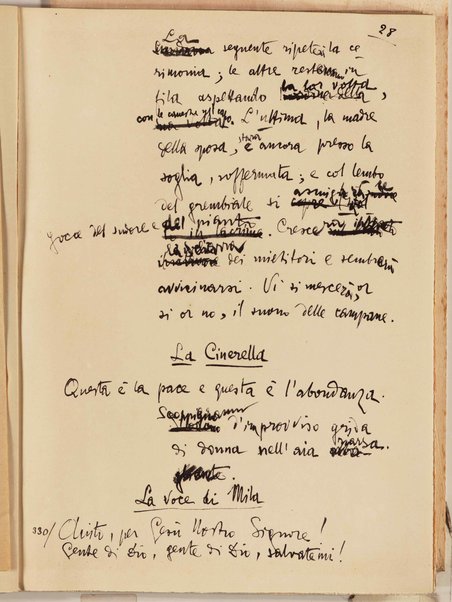 28
La
seguente ripeterà la ce-
rimonia; le altre resteranno in
fila aspettando la lor volta,
con le canestre L'ultima, la madre
della sposa, starà ancora presso la
soglia, soffermata; e col lembo
del grembiale si asciugherà le
gocce del sudore e del pianto. Crescerà
dei mietitori e sembrerà
avvicinarsi. Vi si mescerà, or
sì or no, il suono delle campane.
La Cinerella
Questa è la pace e questa è l'abbondanza.
Scoppieranno d'improvviso grida
di donna nell'aia rossa.
La voce di Mila
330/ Aiuto, per Gesù Nostro Signore!
Gente di Dio, gente di Dio, salvatemi!